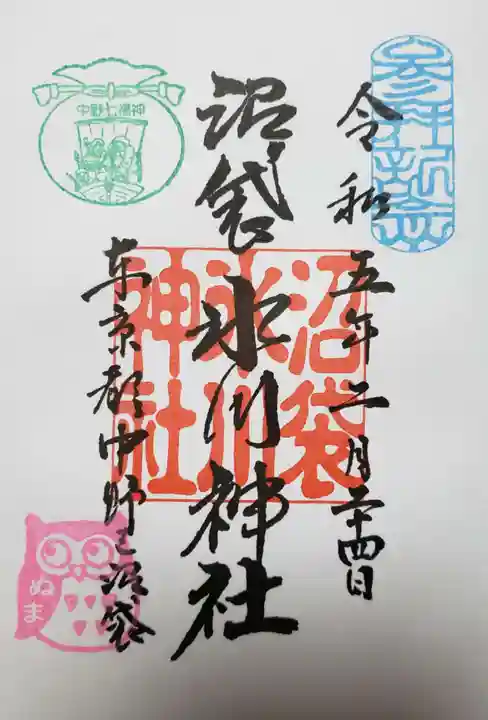 参拝記念
令和五年二月二十四日
沼袋氷川神社
沼袋
氷川
神社
東京都中野区沼袋
中野七福神
ぬま